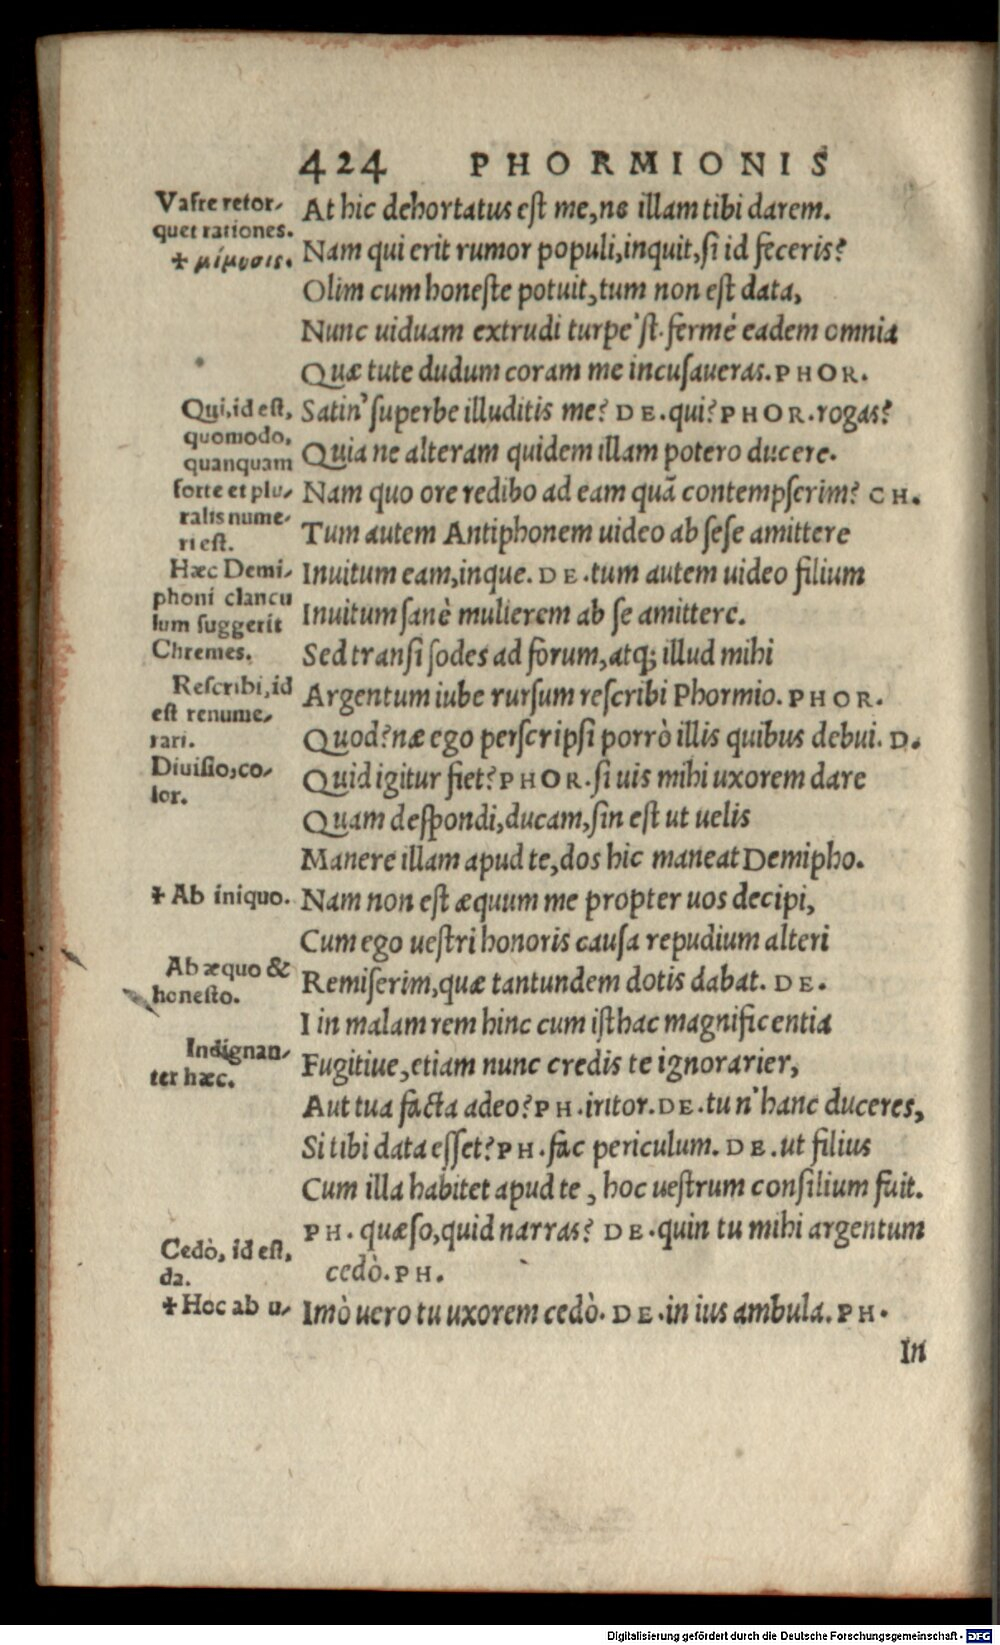 424 PHORMIONIS
Vafre retor-
quet rationes.
✝ μίμησις.
At hic dehortatus eſt me, ne illam tibi darem.
Nam qui erit rumor populi, inquit, ſi id feceris?
Olim cum honeſte potuit, tum non eſt data,
Nunc uiduam extrudi turpe'ſt. fermè eadem omnia
Quæ tute dudum coram me incuſaueras. PHOR.
Qui, id eſt,
quomodo,
quanquam
forte et plu-
ralis nume-
ri eſt.
Satin' ſuperbe illuditis me? DE. qui? PHOR. rogas?
Quia ne alteram quidem illam potero ducere.
Nam quo ore redibo ad eam quã contempſerim? CH.
Tum autem Antiphonem uideo ab ſeſe amittere
Hæc Demi-
phoni clancu
lum ſuggerit
Chremes.
Inuitum eam, inque. DE. tum autem uideo filium
Inuitum ſanè mulierem ab ſe amittere.
Sed tranſi ſodes ad forum, atq; illud mihi
Reſcribi, id
eſt renume-
rari.
Argentum iube rurſum reſcribi Phormio. PHOR.
Quod? næ ego perſcripſi porrò illis quibus debui. D.
Diuiſio, co-
lor.
Quid igitur fiet? PHOR. ſi uis mihi uxorem dare
Quam deſpondi, ducam, ſin eſt ut uelis
Manere illam apud te, dos hic maneat Demipho.
✝ Ab iniquo.
Nam non eſt æquum me propter uos decipi,
Cum ego ueſtri honoris cauſa repudium alteri
Ab æquo &
honeſto.
Remiſerim, quæ tantundem dotis dabat. DE.
I in malam rem hinc cum iſthac magnificentia
Indignan-
ter hæc.
Fugitiue, etiam nunc credis te ignorarier,
Aut tua facta adeo? PH. iritor. DE. tu n' hanc duceres,
Si tibi data eſſet? PH. fac periculum. DE. ut filius
Cum illa habitet apud te, hoc ueſtrum conſilium fuit.
PH. quæſo, quid narras? DE. quin tu mihi argentum
cedò. PH.
Cedò, id eſt,
da.
✝ Hoc ab u-
Imò uero tu uxorem cedò. DE. in ius ambula. PH.
In
Digitalisierung gefördert durch die Deutsche Forschungsgemeinschaft - DFG